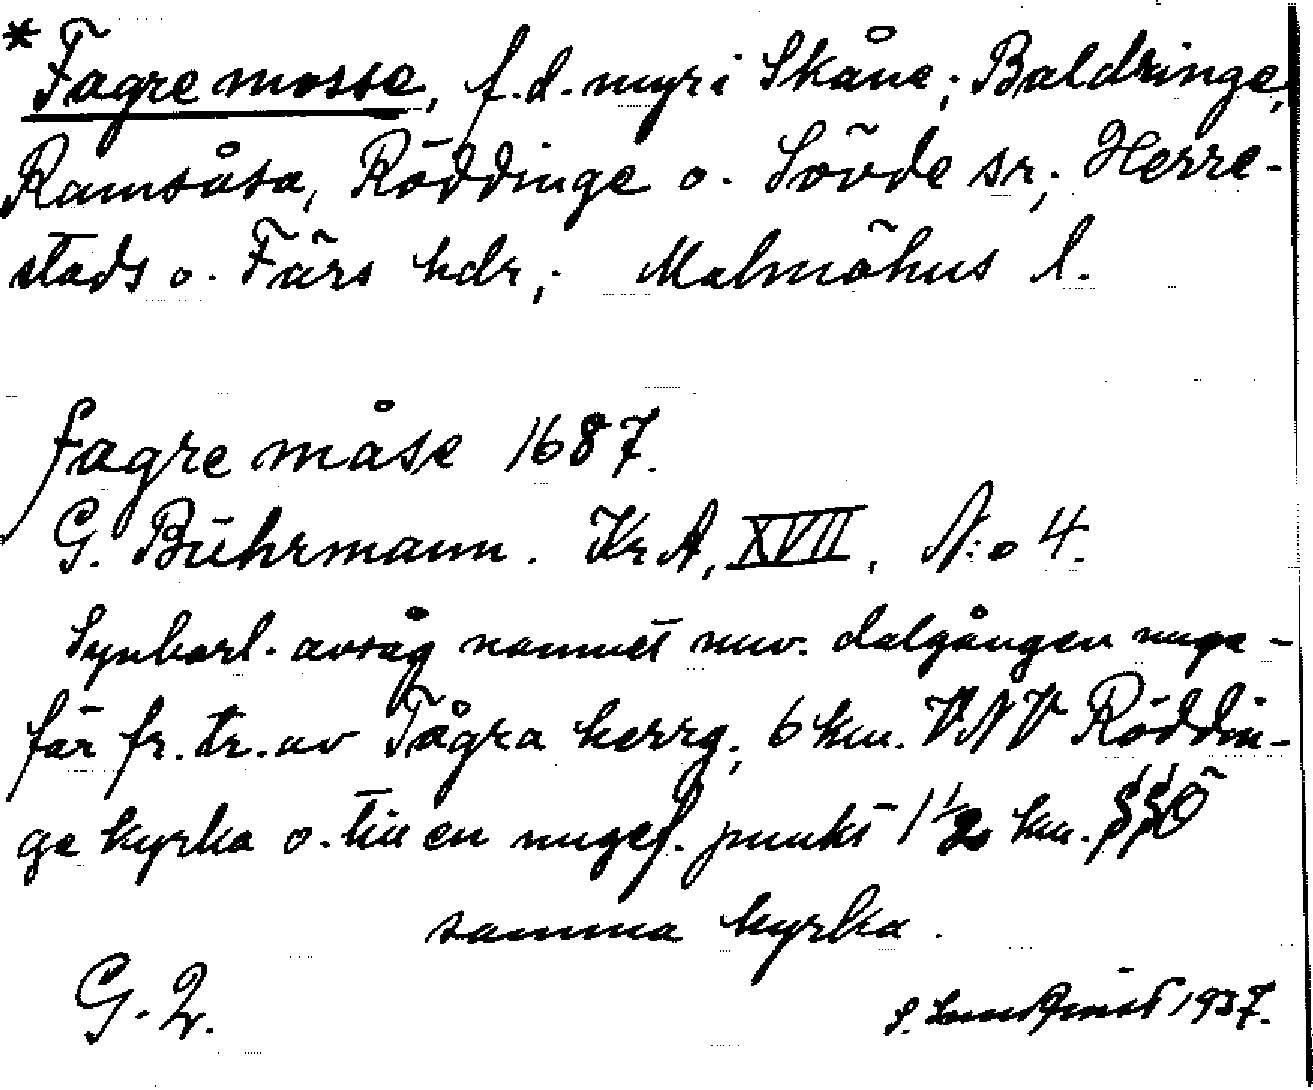 *Fagre mosse, f.d. myr i Skåne; Baldringe,
Ramsåsa, Röddinge o. Sövde sr; Herre-
stads o. Färs hdr; Malmöhus l.
fagre måse 1687.
G. Bührmann. Kr A, XVII, N:o 4.
Synbarl. avsåg namnet nuv. dalgången unge-
fär fr. tr. av Tågra herrg, 6 km. VNV Röddin-
ge kyrka o. till en ungef. punkt 1½ km. SSÖ
samma kyrka.
G. 2. S. 1937.